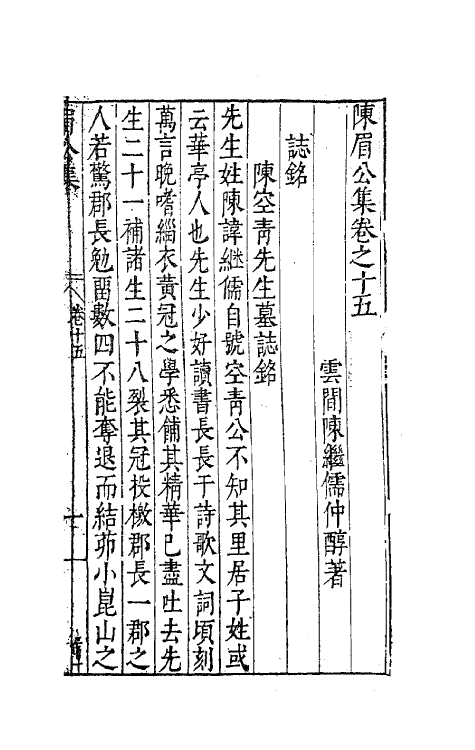 陳眉公集卷之十五
雲間陳繼儒仲醇著
誌銘
陳空青先生墓誌銘
先生姓陳諱繼儒自號空青公不知其里居子姓或
云華亭人也先生少好讀書長長于詩歌文詞頃刻
萬言晚嗜緇衣黃冠之學悉餔其精華已盡吐去先
生二十一補諸生二十八裂其冠投檄郡長一郡之
人若驚郡長勉畱數四不能奪退而結茆小崑山之
眉公集
卷十五
一